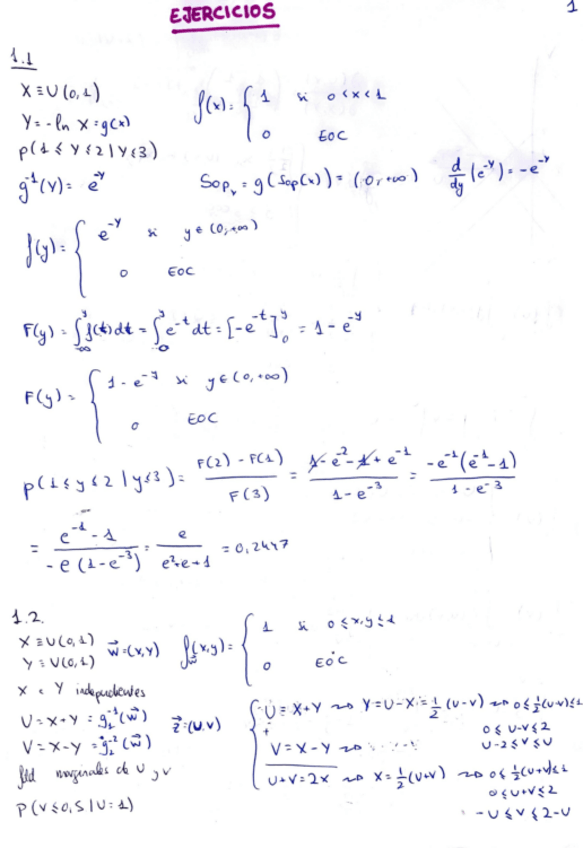 EJERCICIOS
1
1.1
X ≡ U(0,1)
f(x) = { 1 si 0<x<1
0 EOC
Y = -ln X = g(x)
p(1 ≤ Y ≤ 2 | Y ≤ 3)
g⁻¹(Y) = e^-Y
Sop_Y = g(Sop(x)) = (0,+∞)
d/dy (e^-Y) = -e^-Y
f(y) = { e^-Y si y ∈ (0,+∞)
0 EOC
F(y) = ∫_-∞^y f(t)dt = ∫_0^y e^-t dt = [-e^-t]_0^y = 1 - e^-y
F(y) = { 1 - e^-y si y ∈ (0,+∞)
0 EOC
p(1 ≤ y ≤ 2 | y ≤ 3) = (F(2) - F(1)) / F(3) = (1 - e^-2 - 1 + e^-1) / (1 - e^-3) = -e^-1(e^-1 - 1) / (1 - e^-3)
= (e^-1 - 1) / (-e(1 - e^-3)) = e / (e²+e+1) = 0,2447
1.2.
X ≡ U(0,1)
Y ≡ U(0,1)
W⃗ = (X,Y)
f_W⃗(x,y) = { 1 si 0 ≤ x,y ≤ 1
0 EOC
X e Y independientes
U = X+Y = g₁⁻¹(W⃗)
V = X-Y = g₂⁻¹(W⃗)
Z⃗ = (U,V)
fdd marginales de U y V
P(V ≤ 0,5 | U = 1)
U = X+Y ⇝ Y = U-X = ½(U-V) ⇝ 0 ≤ ½(U-V) ≤ 1
+
0 ≤ U-V ≤ 2
V = X-Y ⇝
U-2 ≤ V ≤ U
U+V = 2X ⇝ X = ½(U+V) ⇝ 0 ≤ ½(U+V) ≤ 1
0 ≤ U+V ≤ 2
-U ≤ V ≤ 2-U